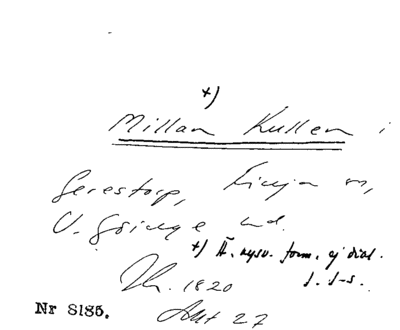 +)
Millan Kullen i
Gerestorp, Finja sn,
V. Göinge hd.
+) Ä. nysv. form. ej dial.
1820 J. S-s.
Nr 8185. Akt 27